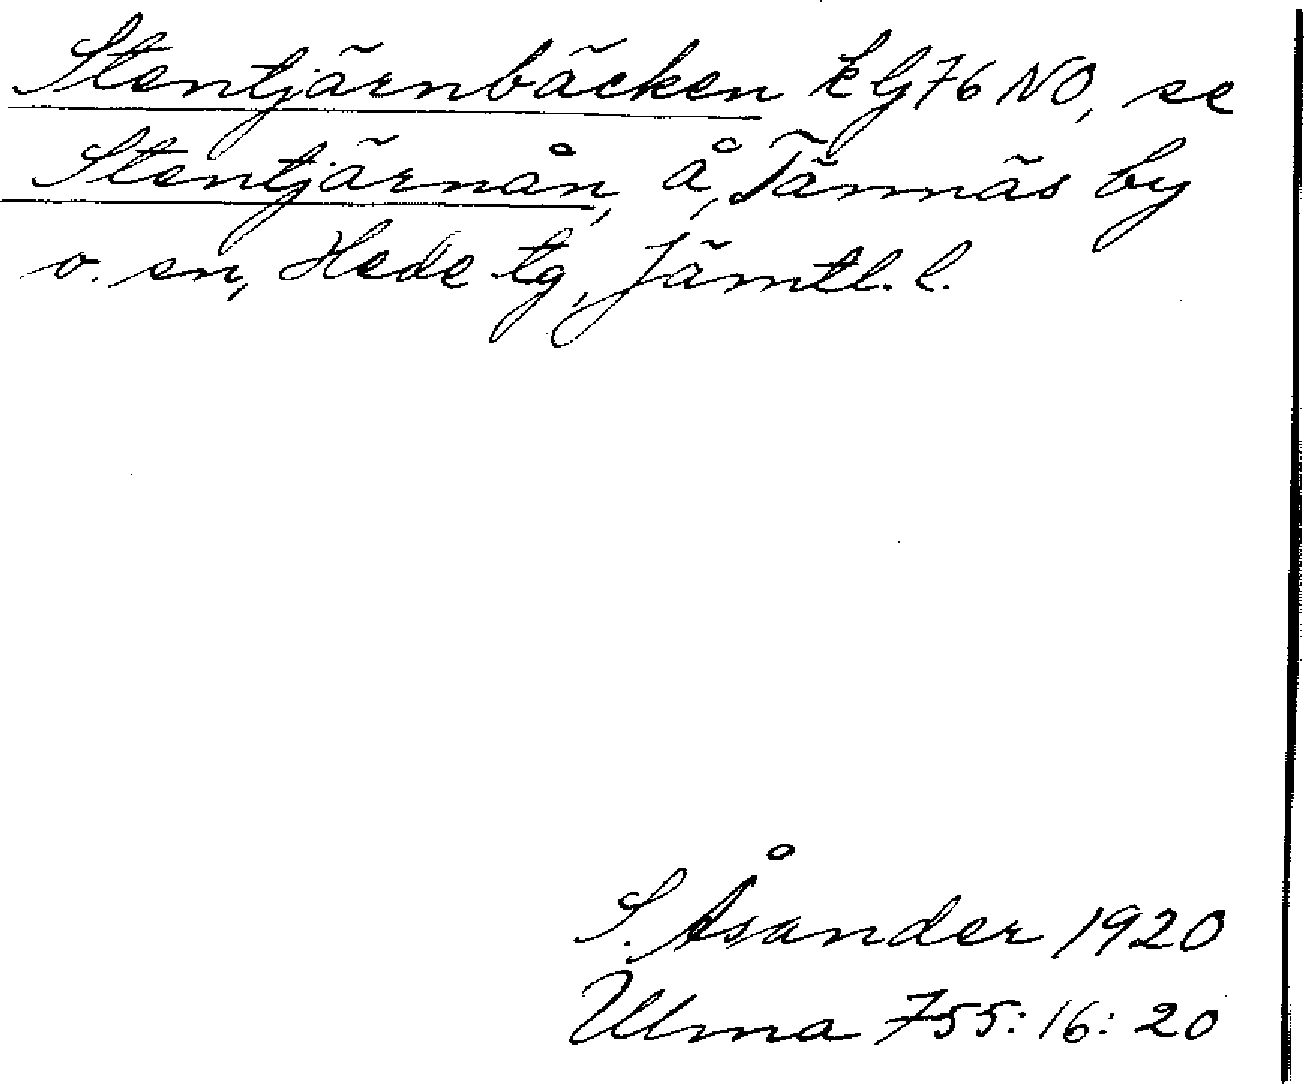 Stentjärnbäcken k G76 NO, se
Stentjärnån, å, Tännäs by
o. sn, Hede tg, Jämtl. l.
S. Åsander 1920
Ulma 755:16:20